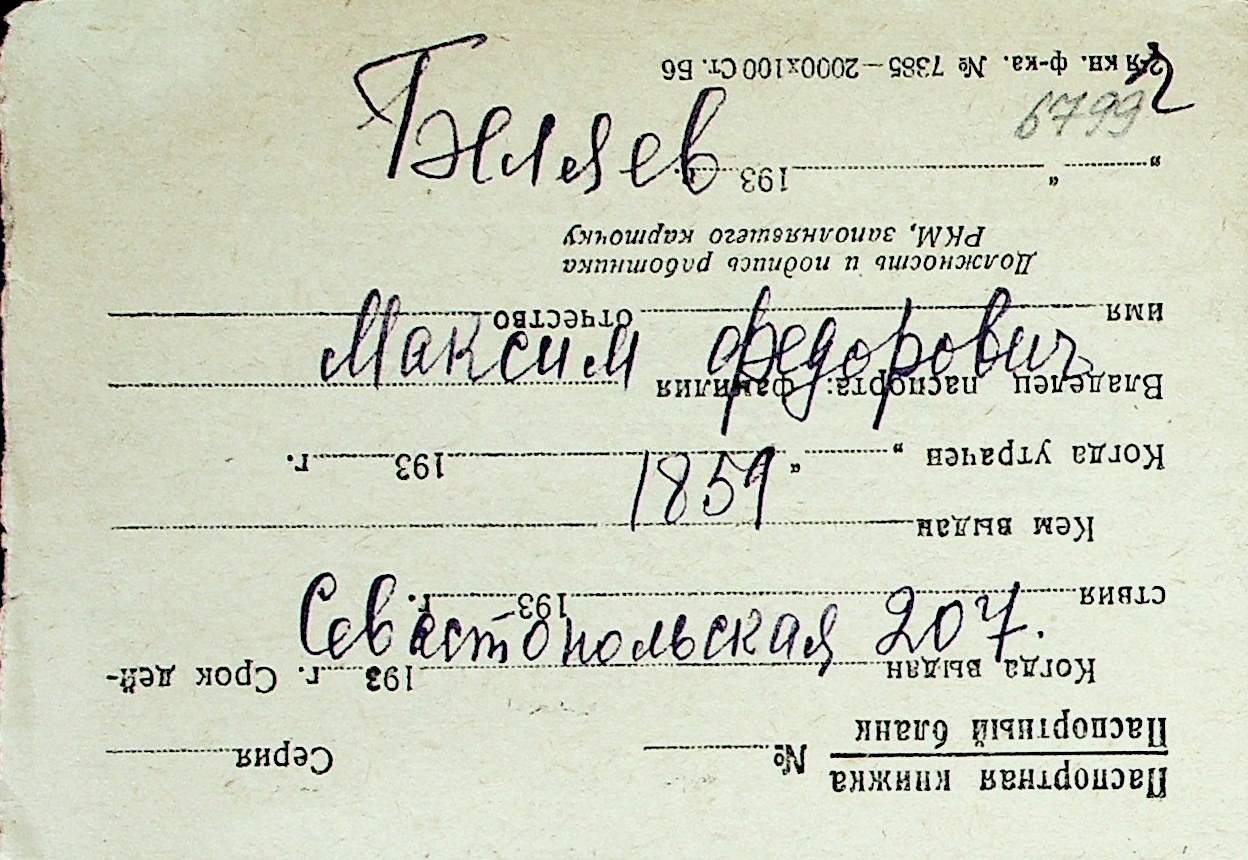 2
6799
Беляев
Максим Федорович
1859
Севастопольская 207.
Паспортная книжка
Паспортный бланк № Серия
Когда выдан 193 г. Срок дей-
ствия 193 г.
Кем выдан
Когда утрачен „ “ 193 г.
Владелец паспорта: фамилия
имя отчество
Должность и подпись работника
РКМ, заполнявшего карточку
„ “ 193 г.
2-я кн. ф-ка. № 7385—2000х100 Ст. Б6